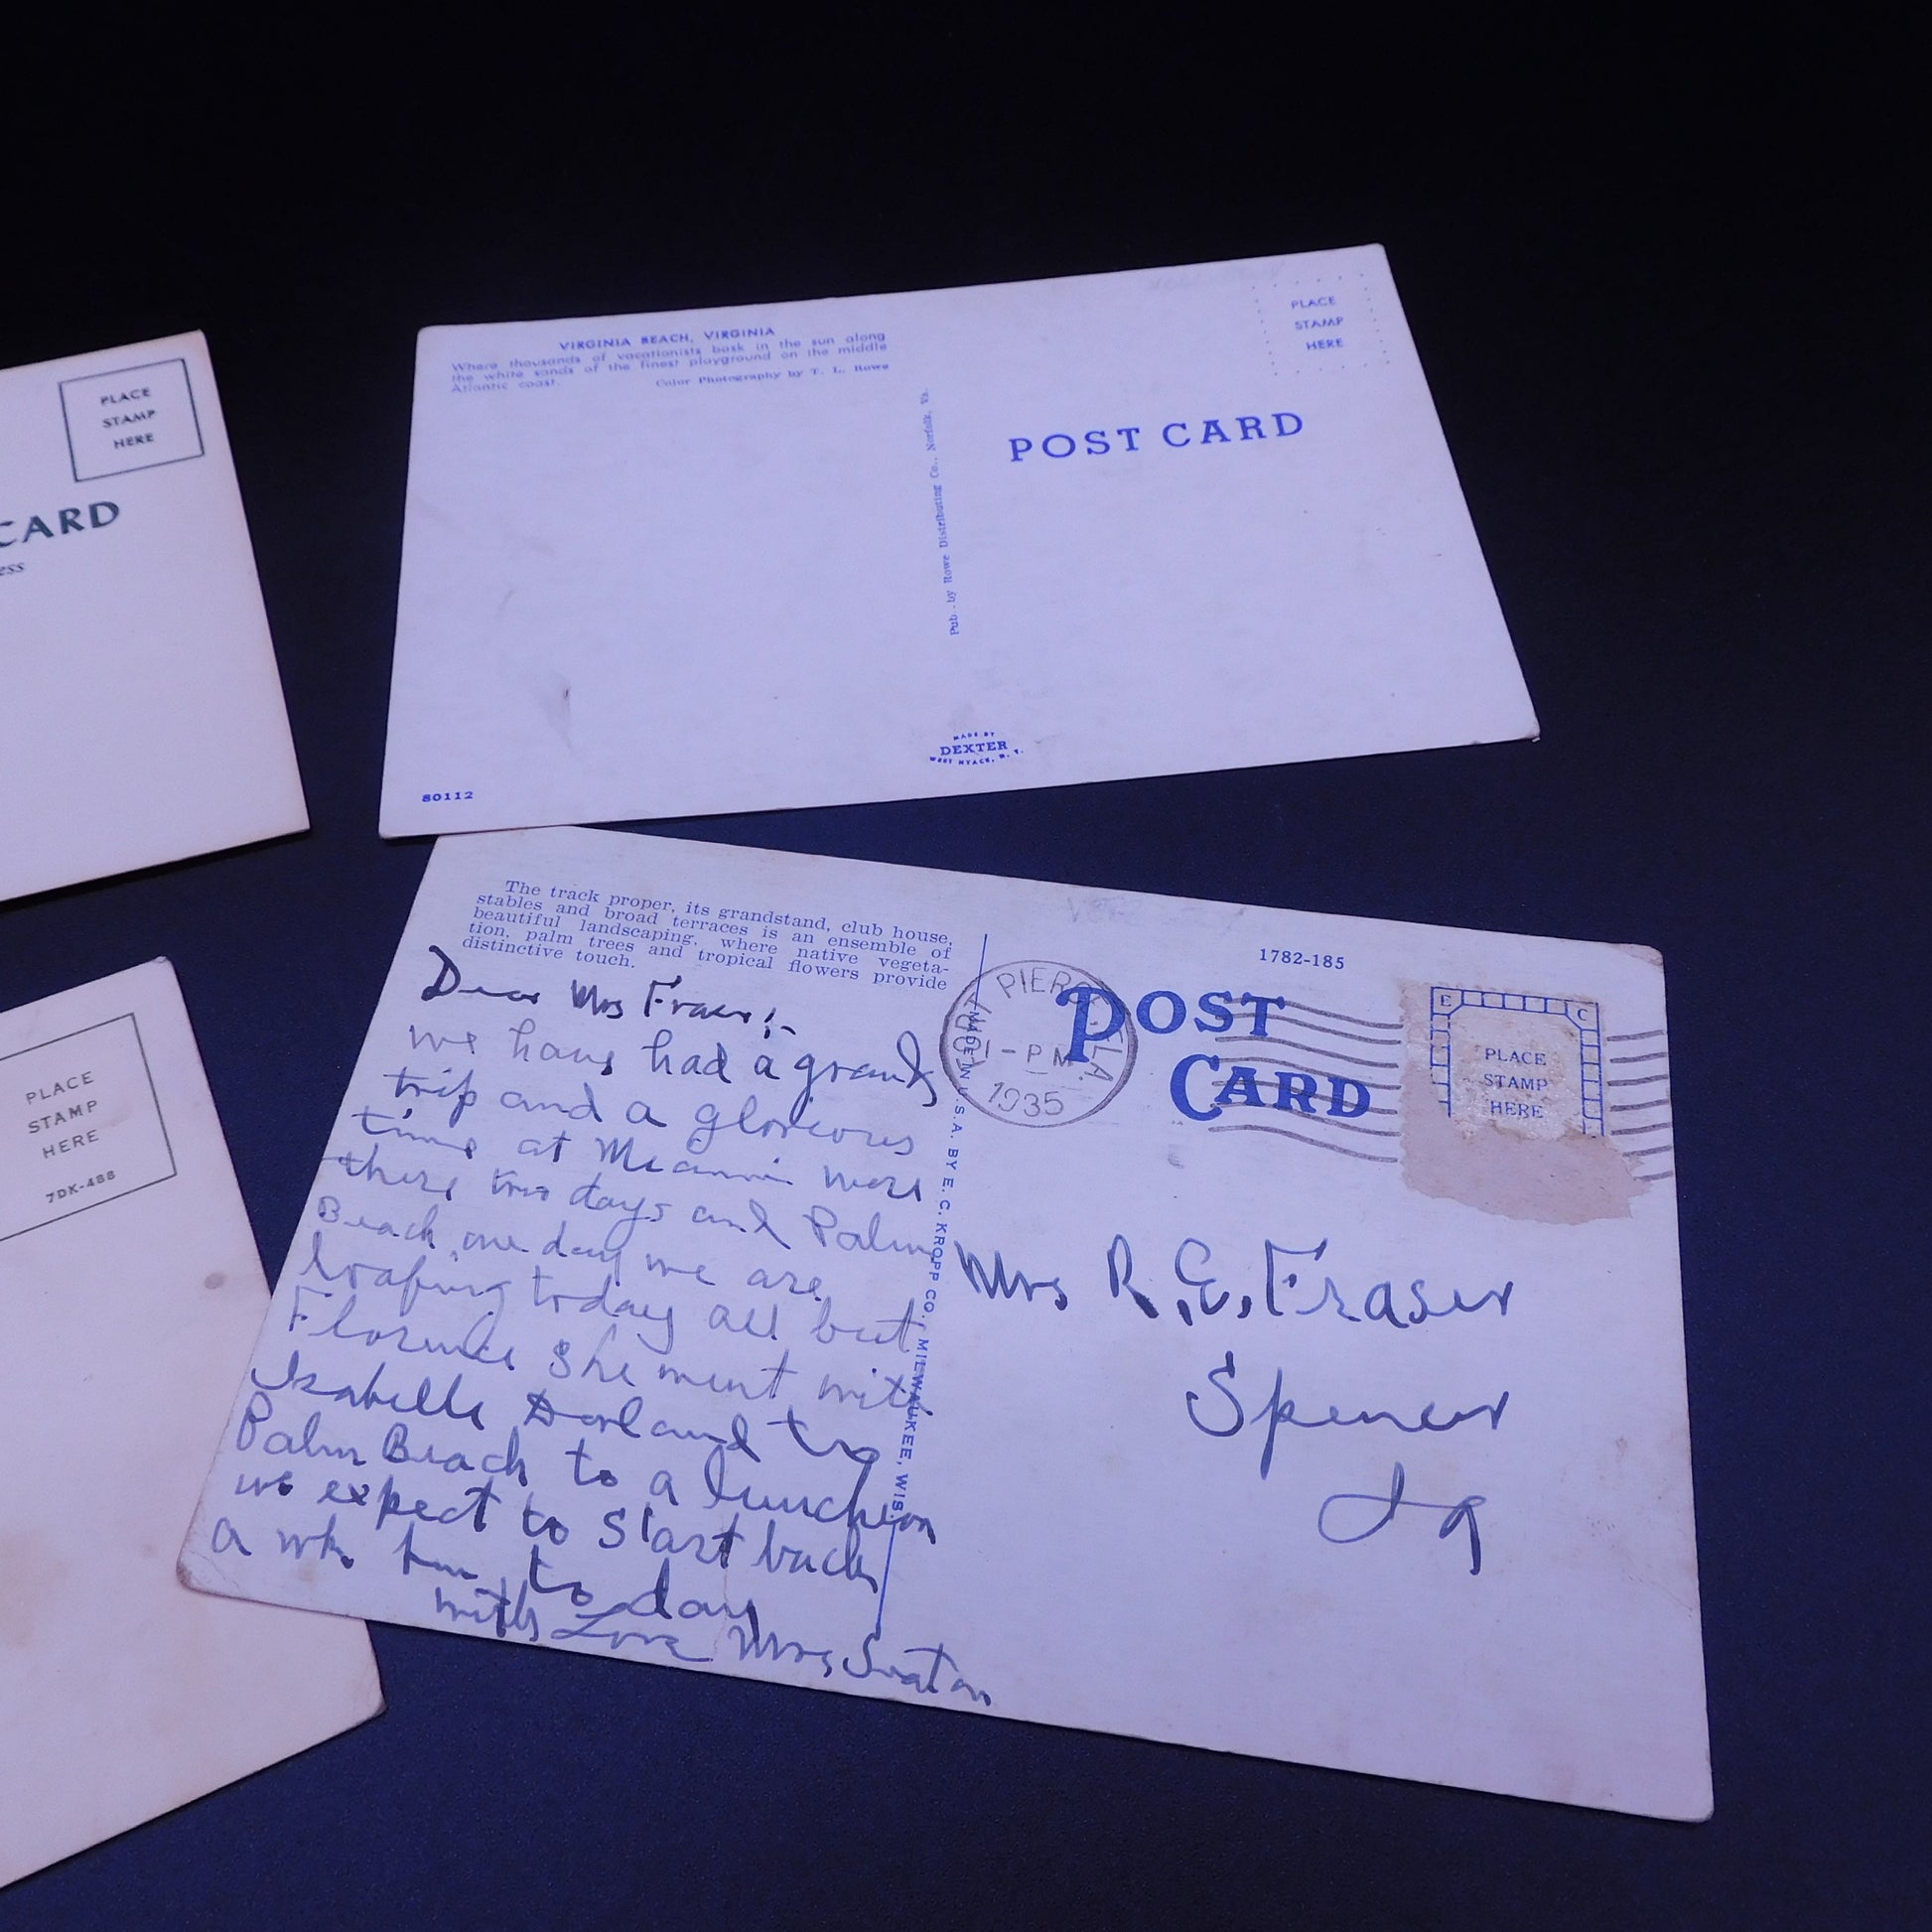 PLACE
STAMP
HERE
CARD
ess
VIRGINIA BEACH, VIRGINIA
Where thousands of vacationists bask in the sun along
the white sands of the finest playground on the middle
Atlantic coast.
Color Photography by T. L. Rowe
Pub. by Rowe Distributing Co., Norfolk, Va.
PLACE
STAMP
HERE
POST CARD
MADE BY
DEXTER
WEST NYACK, N. Y.
80112
PLACE
STAMP
HERE
7DK-488
The track proper, its grandstand, club house,
stables and broad terraces is an ensemble of
beautiful landscaping, where native vegeta-
tion, palm trees and tropical flowers provide
distinctive touch.
Dear Mrs Fraser:-
we have had a grand
trip and a glorious
time at Miami were
there two days and Palm
Beach one day we are
loafing today all but
Florence she went with
Isabelle Dorland to
Palm Beach to a luncheon
we expect to start back
a wk from to day
with Love Mrs Seaton
MADE IN U.S.A. BY E. C. KROPP CO., MILWAUKEE, WIS.
1782-185
FORT PIERCE, FLA.
1-PM
1935
POST
CARD
E C
PLACE
STAMP
HERE
Mrs R.E. Fraser
Spencer
Ia